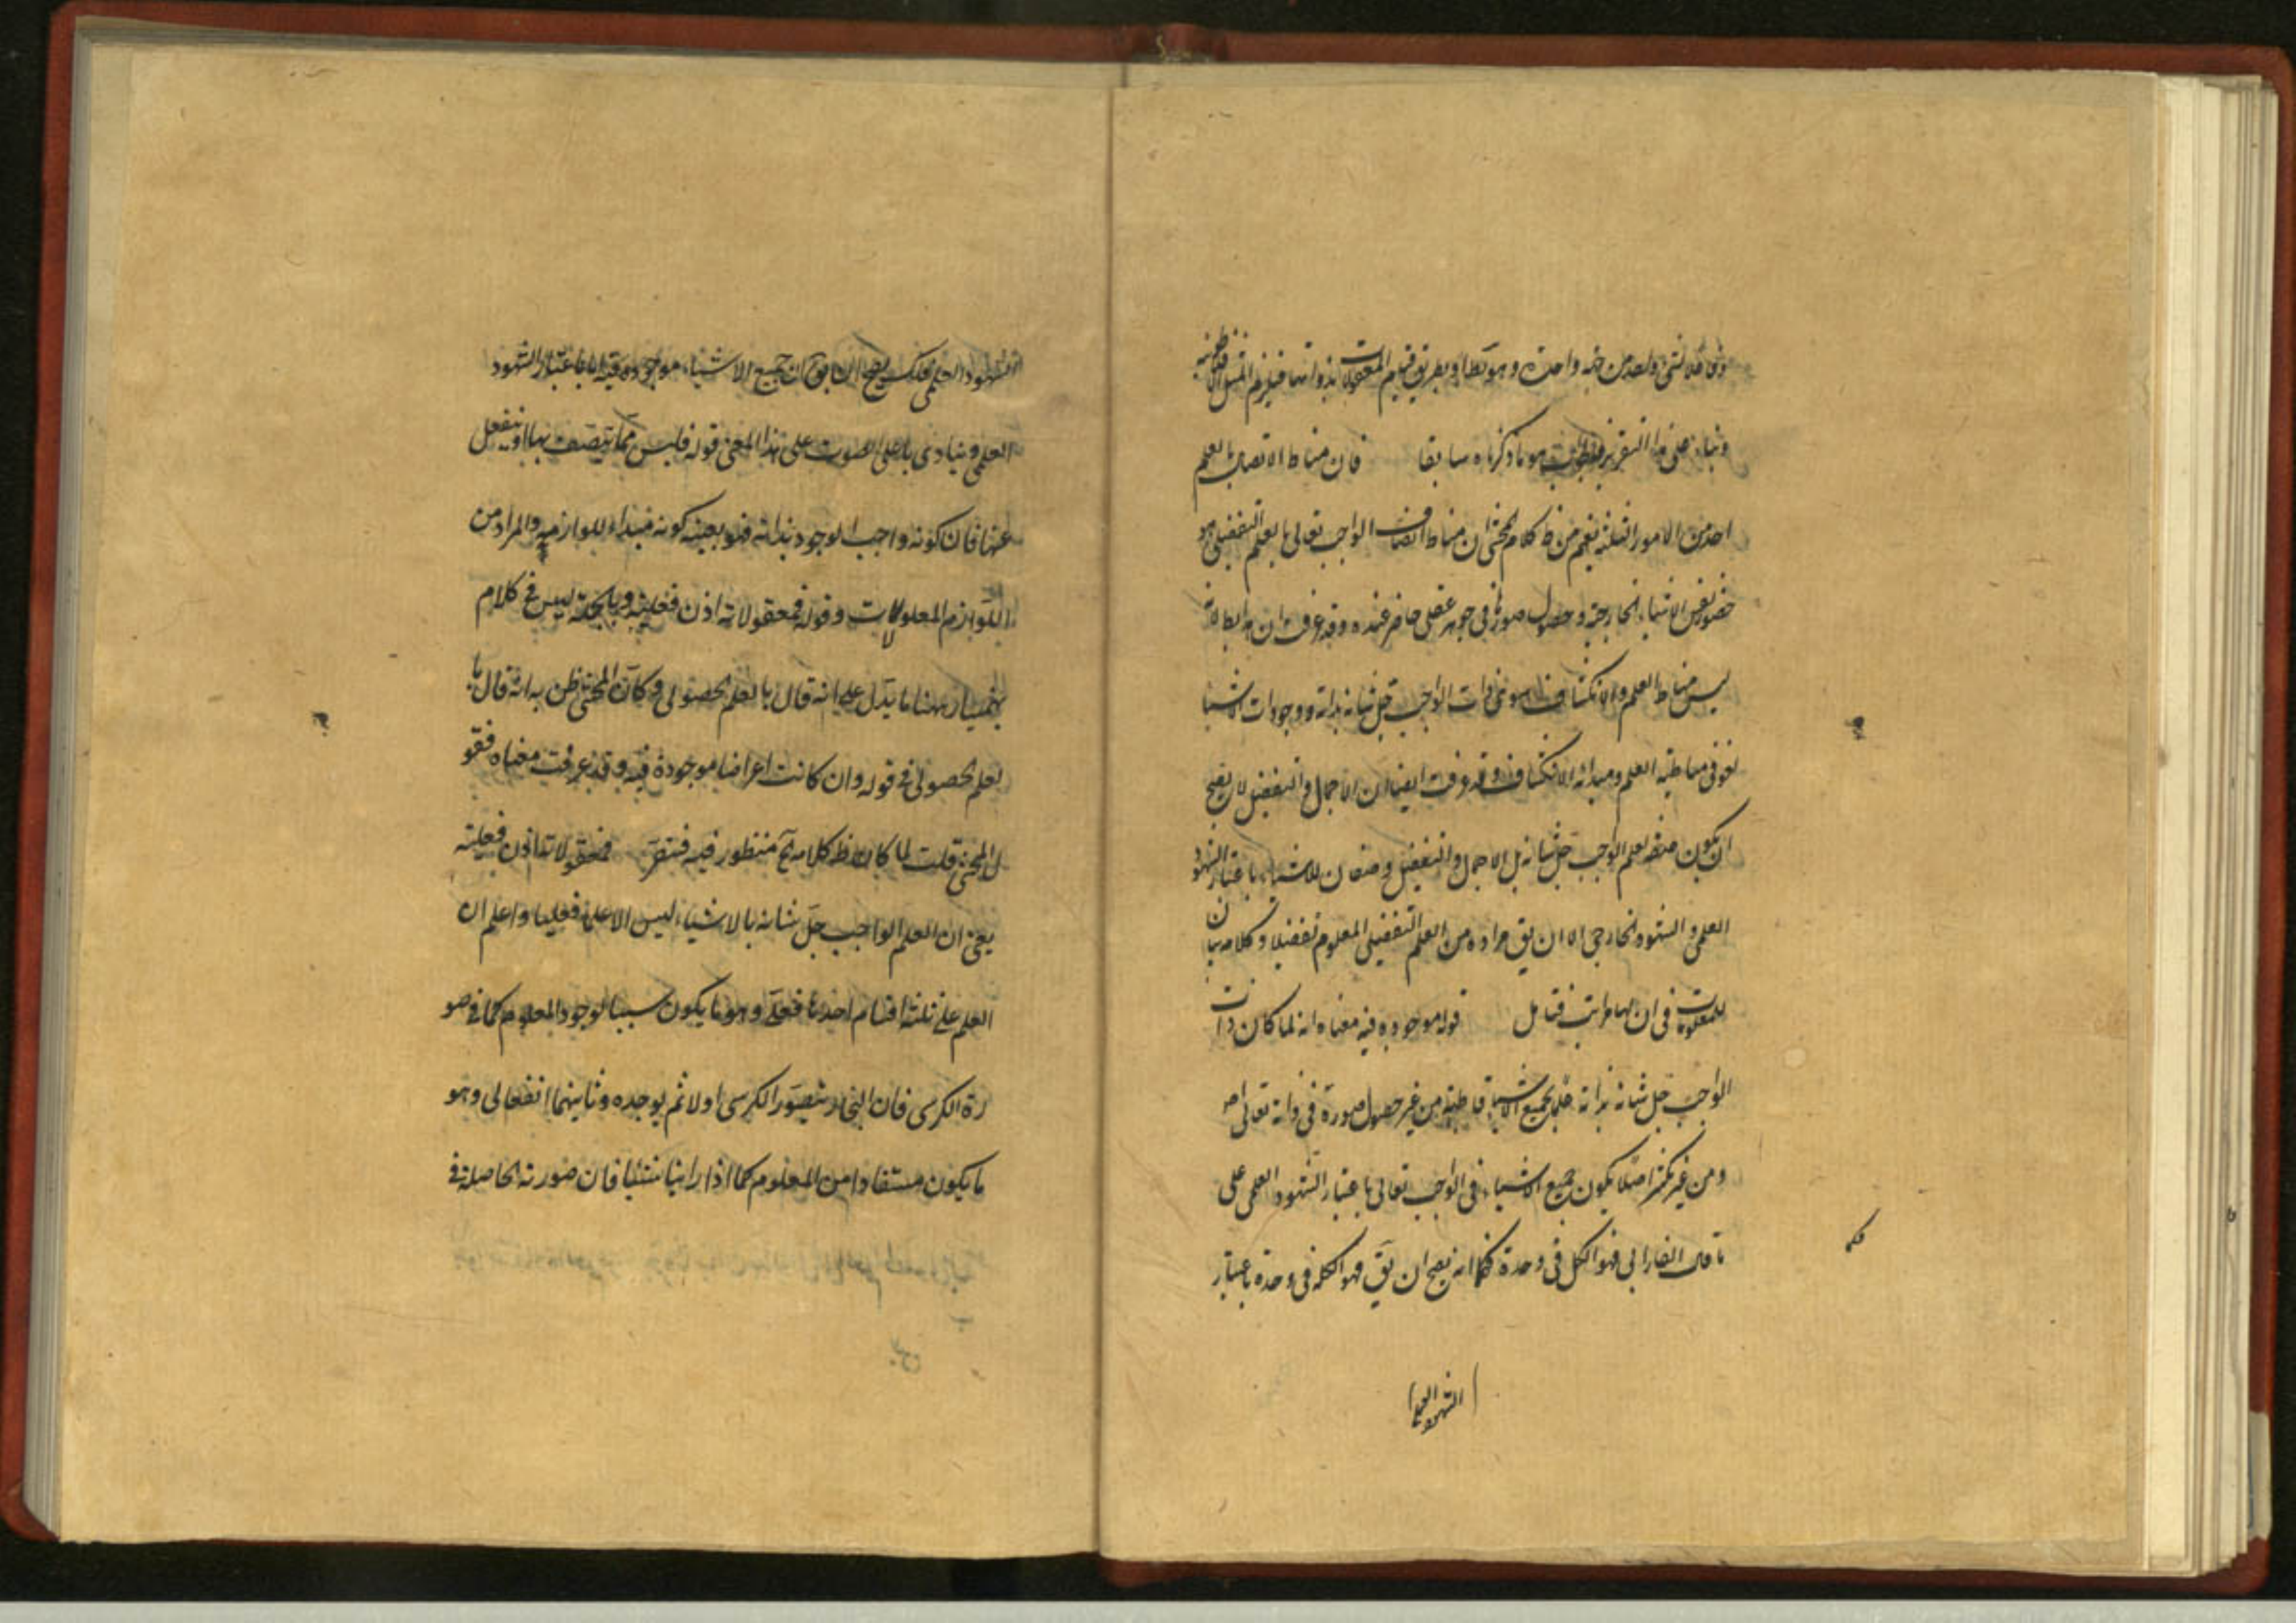 فلا شيء واحد من جهة واحدة وهو بط او بطريق قيام المعقولات بذواتها فيلزم المثل الافلاطونية
وبناء على هذا التقرير هو ما ذكرناه سابقا فان مناط الاتصاف بالعلم
احد من الامور الثلثة نعم من ظ كلام المحشى ان مناط اتصاف الواجب تعالى بالعلم التفصيلى هو
حضور نفس الاشياء الخارجية وحصول صورها فى جوهر عقلى حاضر عنده وقد عرفت ان هذا بط لانه
ليس مناط العلم والانكشاف هو ذات الواجب جل شانه بذاته ووجودات الاشيا
لغو فى مناطية العلم ومبدائه الانكشاف وقد عرفت ايضا ان الاجمال والتفصيل لا يصح
ان يكون صفة لعلم الواجب جل شانه بل الاجمال والتفصيل وصفان للاشياء باعتبار الشهود
العلمى والشهود الخارجى الا ان يق مراده من العلم التفصيلى المعلوم تفصيلا وكلامه بيان
للمعلومات فى ان لها مراتب فتامل قوله موجوده فيه معناه انه لما كان ذات
الواجب جل شانه بذاته علما بجميع الاشياء قاطبة من غير حصول صورة فى ذاته تعالى اصلا
ومن غير تكثر اصلا يكون جميع الاشياء فى الواجب تعالى باعتبار الشهود العلمى على
ما قال الفارابى فهو الكل فى وحدة فكما انه يصح ان يق فهو الكل فى وحدة باعتبار
الشهود العلمى
الشهود العلمى فكك يصح ان يق ان جميع الاشياء موجودة فيه تعالى باعتبار الشهود
العلمى وينادى باعلى الصوت على هذا المعنى قوله فليس مما يتصف بها او ينفعل
عنها فان كونه واجب الوجود بذاته فهو بعينه كونه مبداء للوازمه والمراد من
اللوازم المعلولات وقوله فمعقولاته اذن فعلية وبالجملة ليس فى كلام
بهمنيار ههنا ما يدل على انه قال بالعلم الحصولى وكان المحشى ظن به انه قال با
لعلم الحصولى فى قوله وان كانت اعراضا موجودة فيه وقد عرفت معناه فقو
ل المحشى قلت لما كان ظ كلامه آه منظور فيه فتبصر فمعقولاته اذن فعلية
يعنى ان العلم الواجب جل شانه بالاشياء ليس الا علما فعليا واعلم ان
العلم على ثلثة اقسام احدها فعلى وهو ما يكون سببا لوجود المعلوم كما فى صو
رة الكرسى فان النجار يتصور الكرسى اولا ثم يوجده وثانيهما انفعالى وهو
ما يكون مستفادا من المعلوم كما اذا راينا شيئا فان صورته الحاصلة فى